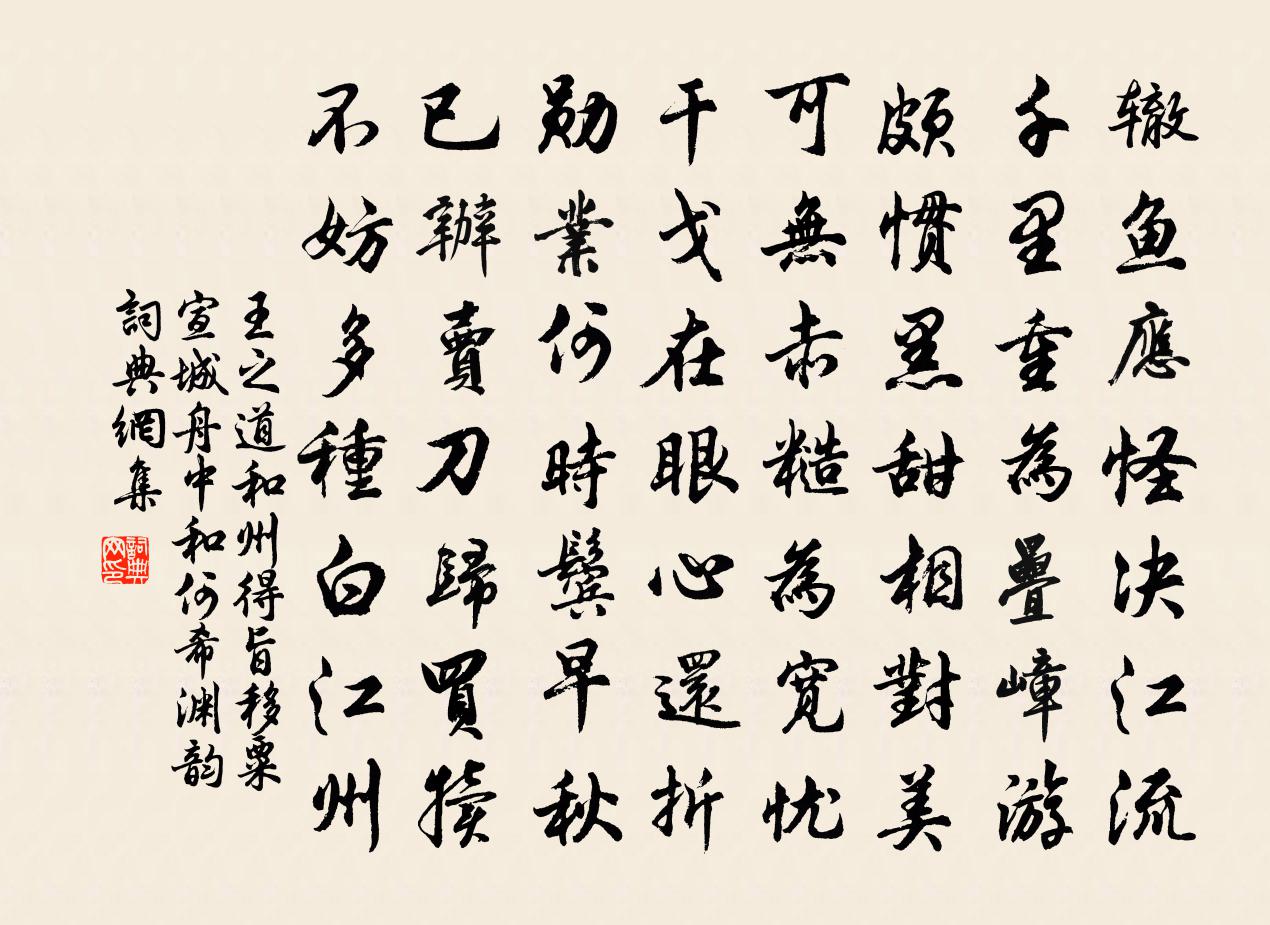 辙鱼應怪决江流
千里重為疊嶂游
頗慣黑甜相對美
可無赤糙為寬忧
干戈在眼心還折
勛業何時鬓早秋
已辦賣刀歸買犊
不妨多種白江州
王之道和州得旨移粟
宣城舟中和何希渊韵
詞典網集
詞典网印